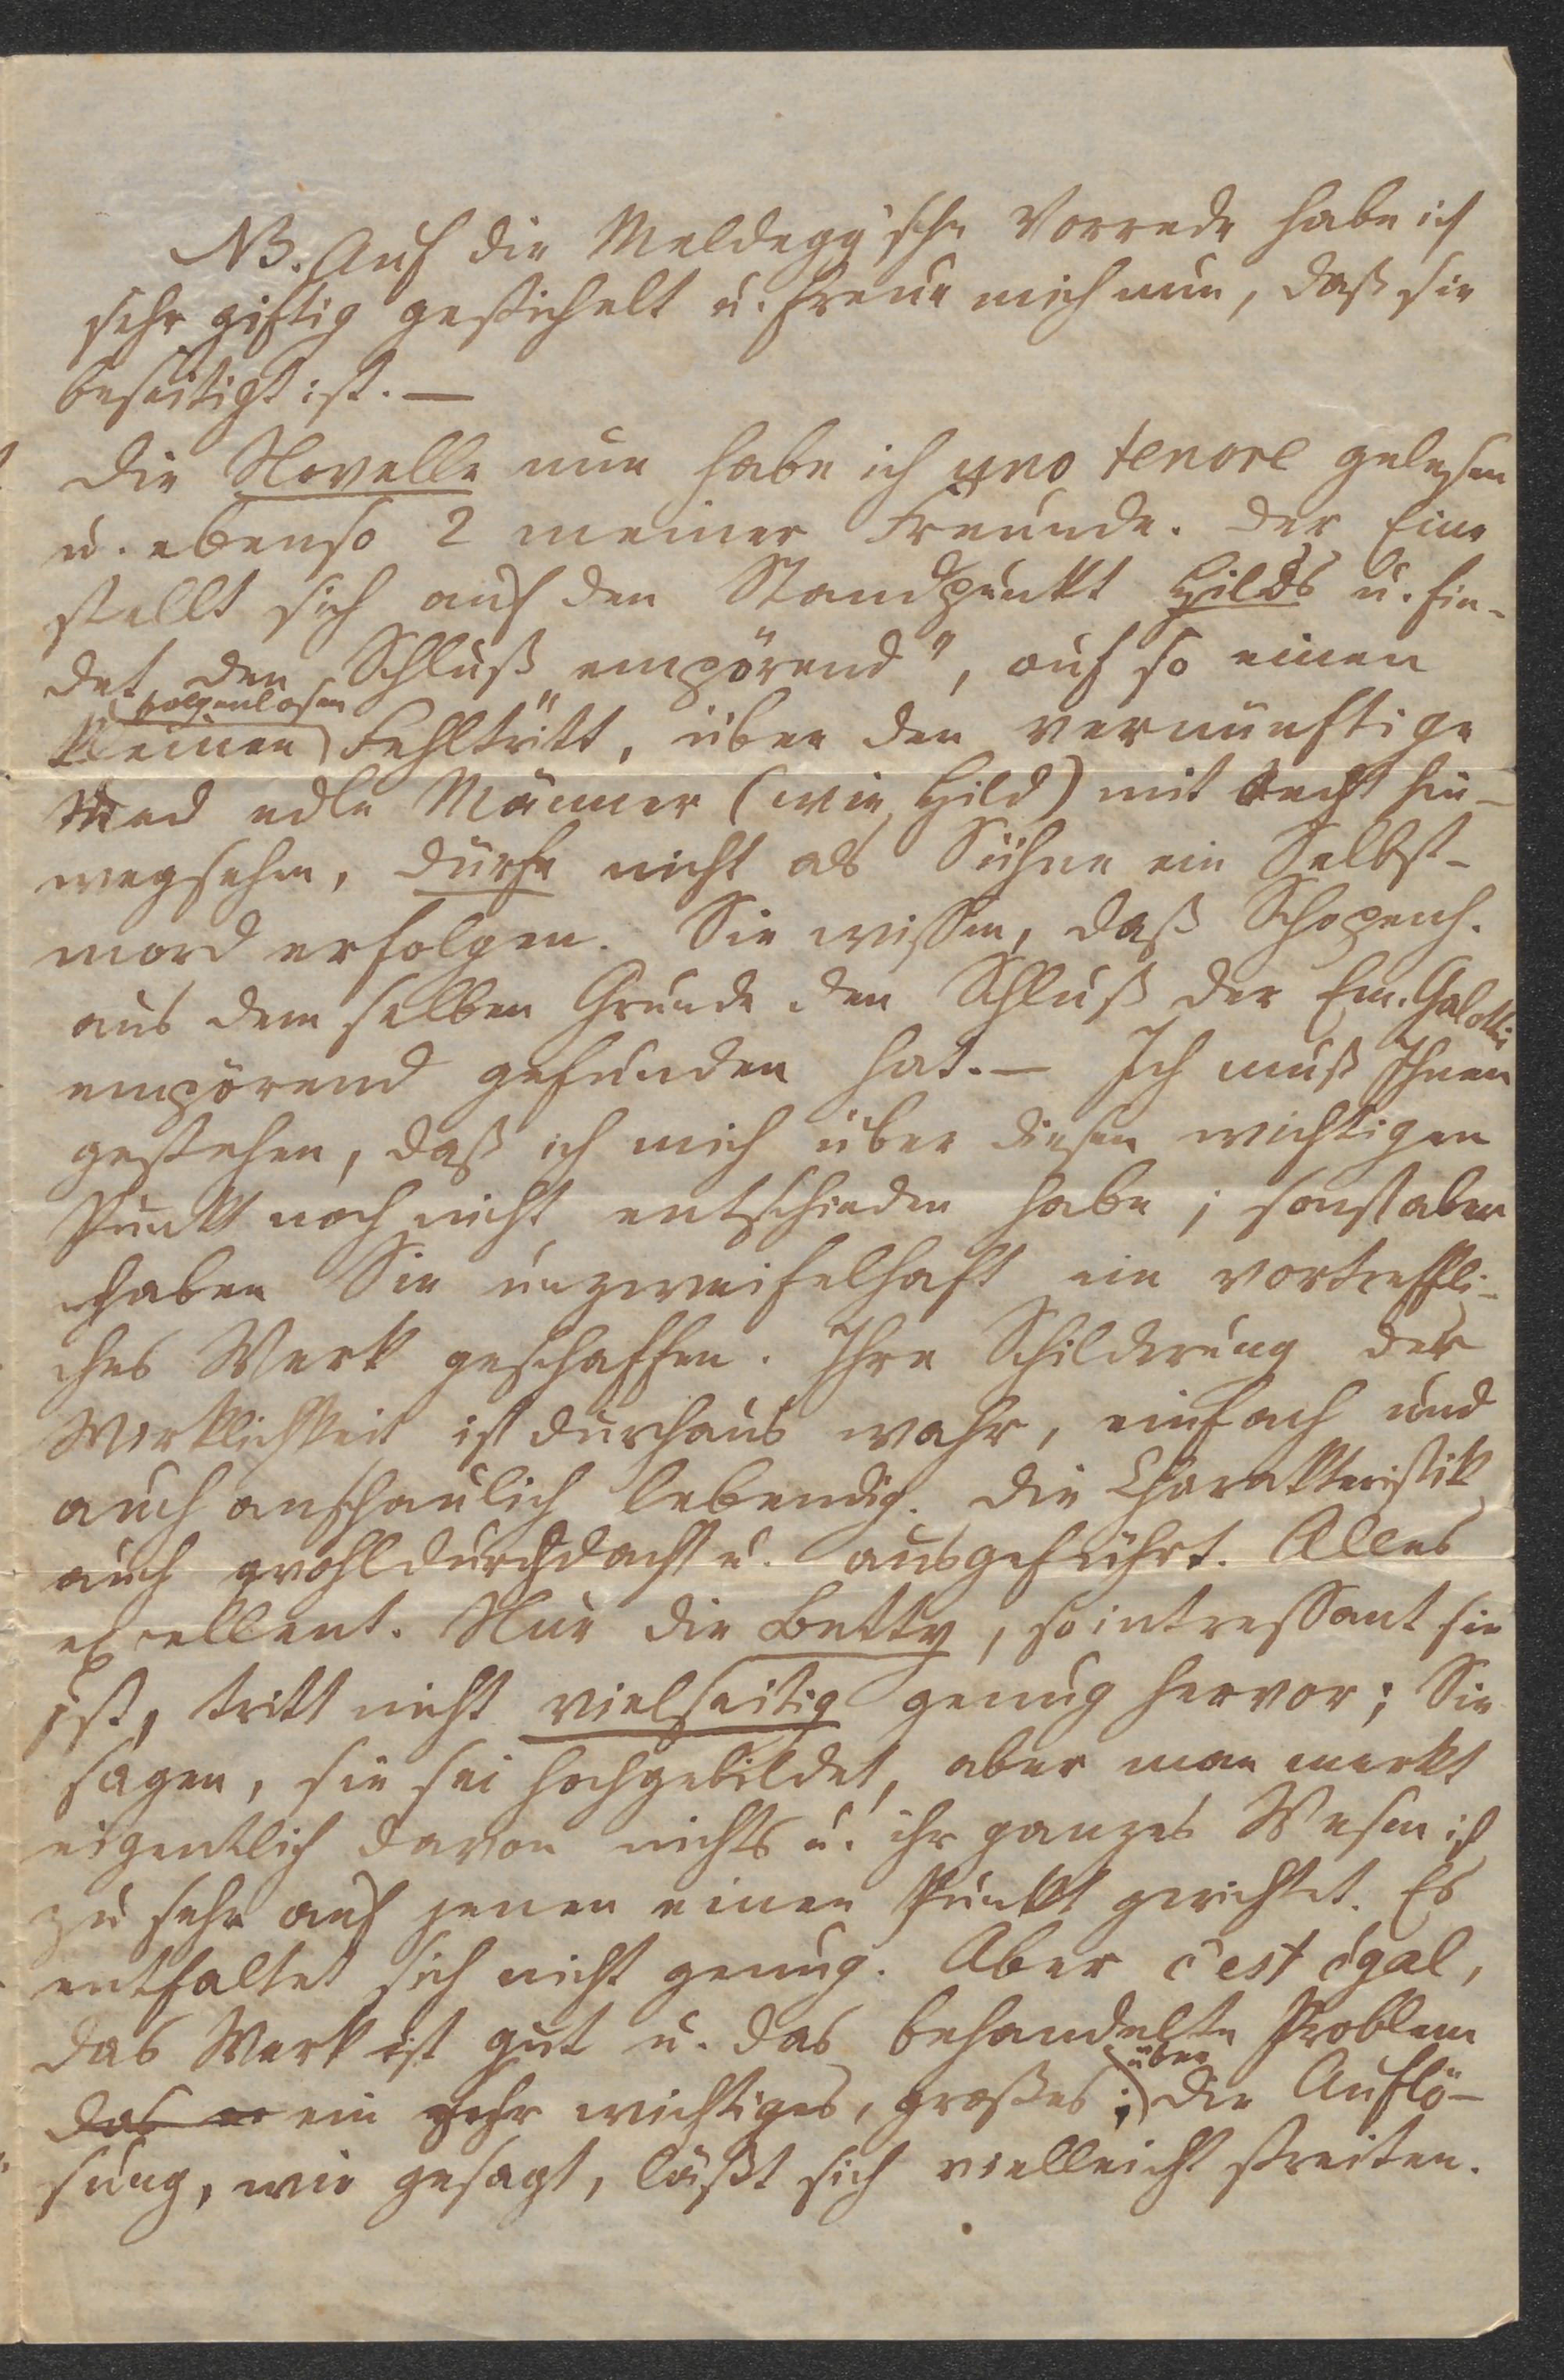 NB. Auf die Meldegg'sche Vorrede habe ich
sehr giftig gestichelt u. freue mich nun, daß sie
beseitigt ist. —
Die Novelle nun habe ich uno tenore gelesen
u. ebenso 2 meiner Freunde. Der Eine
stellt sich auf den Standpunkt Hilds u. fin-
det den Schluß „empörend“, auf so einen
folgenlosen
kleinen Fehltritt, über den vernünftige
und edle Männer (wie Hild) mit Recht hin-
wegsehen, dürfe nicht als Sühne ein Selbst-
mord erfolgen. Sie wissen, daß Schopenh.
aus dem selben Grunde den Schluß der Em. Galotti
empörend gefunden hat. — Ich muß Ihnen
gestehen, daß ich mich über diesen wichtigen
Punkt noch nicht entschieden habe; sonst aber
haben Sie unzweifelhaft ein vortreffli-
ches Werk geschaffen. Ihre Schilderung der
Wirklichkeit ist durchaus wahr, einfach und
auch anschaulich lebendig. Die Charakteristik
auch wohldurchdacht u. ausgeführt. Alles
excellent. Nur die Betty, so intressant sie
ist, tritt nicht vielseitig genug hervor; Sie
sagen, sie sei hochgebildet, aber man merkt
eigentlich davon nichts u. ihr ganzes Wesen ist
zu sehr auf jenen einen Punkt gerichtet. Es
entfaltet sich nicht genug. Aber c'est égal,
das Werk ist gut u. das behandelte Problem
über
das ein sehr wichtiges, großes; die Auflö-
sung, wie gesagt, läßt sich vielleicht streiten.